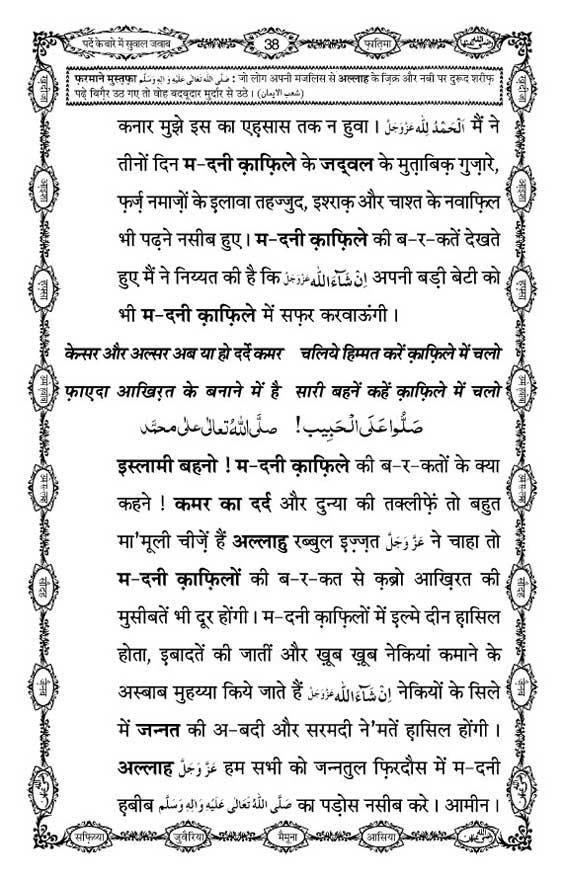 पर्दे के बारे में सुवाल जवाब
38
फ़ातिमा
फ़रमाने मुस्तफ़ा صَلَّى اللهُ تَعَالٰى عَلَيْهِ وَاٰلِهٖ وَسَلَّم : जो लोग अपनी मजलिस से अल्लाह के ज़िक्र और नबी पर दुरूद शरीफ़
पढ़े बिग़ैर उठ गए तो वोह बदबूदार मुर्दार से उठे। (شعب الایمان)
कनार मुझे इस का एह़सास तक न हुवा। اَلْحَمْدُ لِلّٰه عَزَّوَجَلَّ मैं ने
तीनों दिन म-दनी क़ाफ़िले के जद्वल के मुत़ाबिक़ गुज़ारे,
फ़र्ज़ नमाज़ों के इलावा तहज्जुद, इश्राक़ और चाश्त के नवाफ़िल
भी पढ़ने नसीब हुए। म-दनी क़ाफ़िले की ब-र-कतें देखते
हुए मैं ने निय्यत की है कि اِنْ شَآءَ اللّٰه عَزَّوَجَلَّ अपनी बड़ी बेटी को
भी म-दनी क़ाफ़िले में सफ़र करवाऊंगी।
केन्सर और अल्सर अब या हो दर्दे कमर चलिये हिम्मत करें क़ाफ़िले में चलो
फ़ाएदा आख़िरत के बनाने में है सारी बहनें कहें क़ाफ़िले में चलो
صَلُّوا عَلَى الْحَبِيب! صلَّى اللهُ تعالٰى علٰى محمَّد
इस्लामी बहनो ! म-दनी क़ाफ़िले की ब-र-कतों के क्या
कहने ! कमर का दर्द और दुन्या की तक्लीफ़ें तो बहुत
मा'मूली चीज़ें हैं अल्लाहु रब्बुल इज़्ज़त عَزَّ وَجَلَّ ने चाहा तो
म-दनी क़ाफ़िलों की ब-र-कत से क़ब्रो आख़िरत की
मुसीबतें भी दूर होंगी। म-दनी क़ाफ़िलों में इल्मे दीन ह़ासिल
होता, इबादतें की जातीं और ख़ूब ख़ूब नेकियां कमाने के
अस्बाब मुहय्या किये जाते हैं اِنْ شَآءَ اللّٰه عَزَّوَجَلَّ नेकियों के सिले
में जन्नत की अ-बदी और सरमदी ने'मतें ह़ासिल होंगी।
अल्लाह عَزَّ وَجَلَّ हम सभी को जन्नतुल फ़िरदौस में म-दनी
ह़बीब صَلَّى اللهُ تَعَالٰى عَلَيْهِ وَاٰلِهٖ وَسَلَّم का पड़ोस नसीब करे। आमीन।
सफ़िय्या
जुवैरिया
मैमूना
आसिया